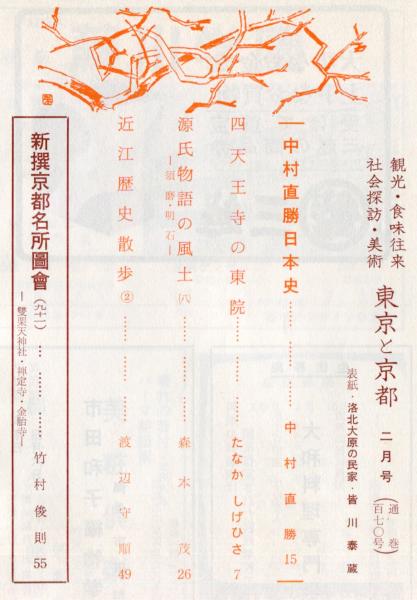 観光・食味往来
社会探訪・美術
東京と京都 二月号（通巻百七〇号）
表紙・洛北大原の民家・皆川泰蔵
中村直勝日本史………………中村直勝 15
四天王寺の東院………………たなかしげひさ 7
源氏物語の風土（八）………………森本茂 26
―須磨・明石―
近江歴史散歩②………………渡辺守順 49
新撰京都名所圖會（九十一）………………竹村俊則 55
―雙栗天神社・禅定寺・金胎寺―